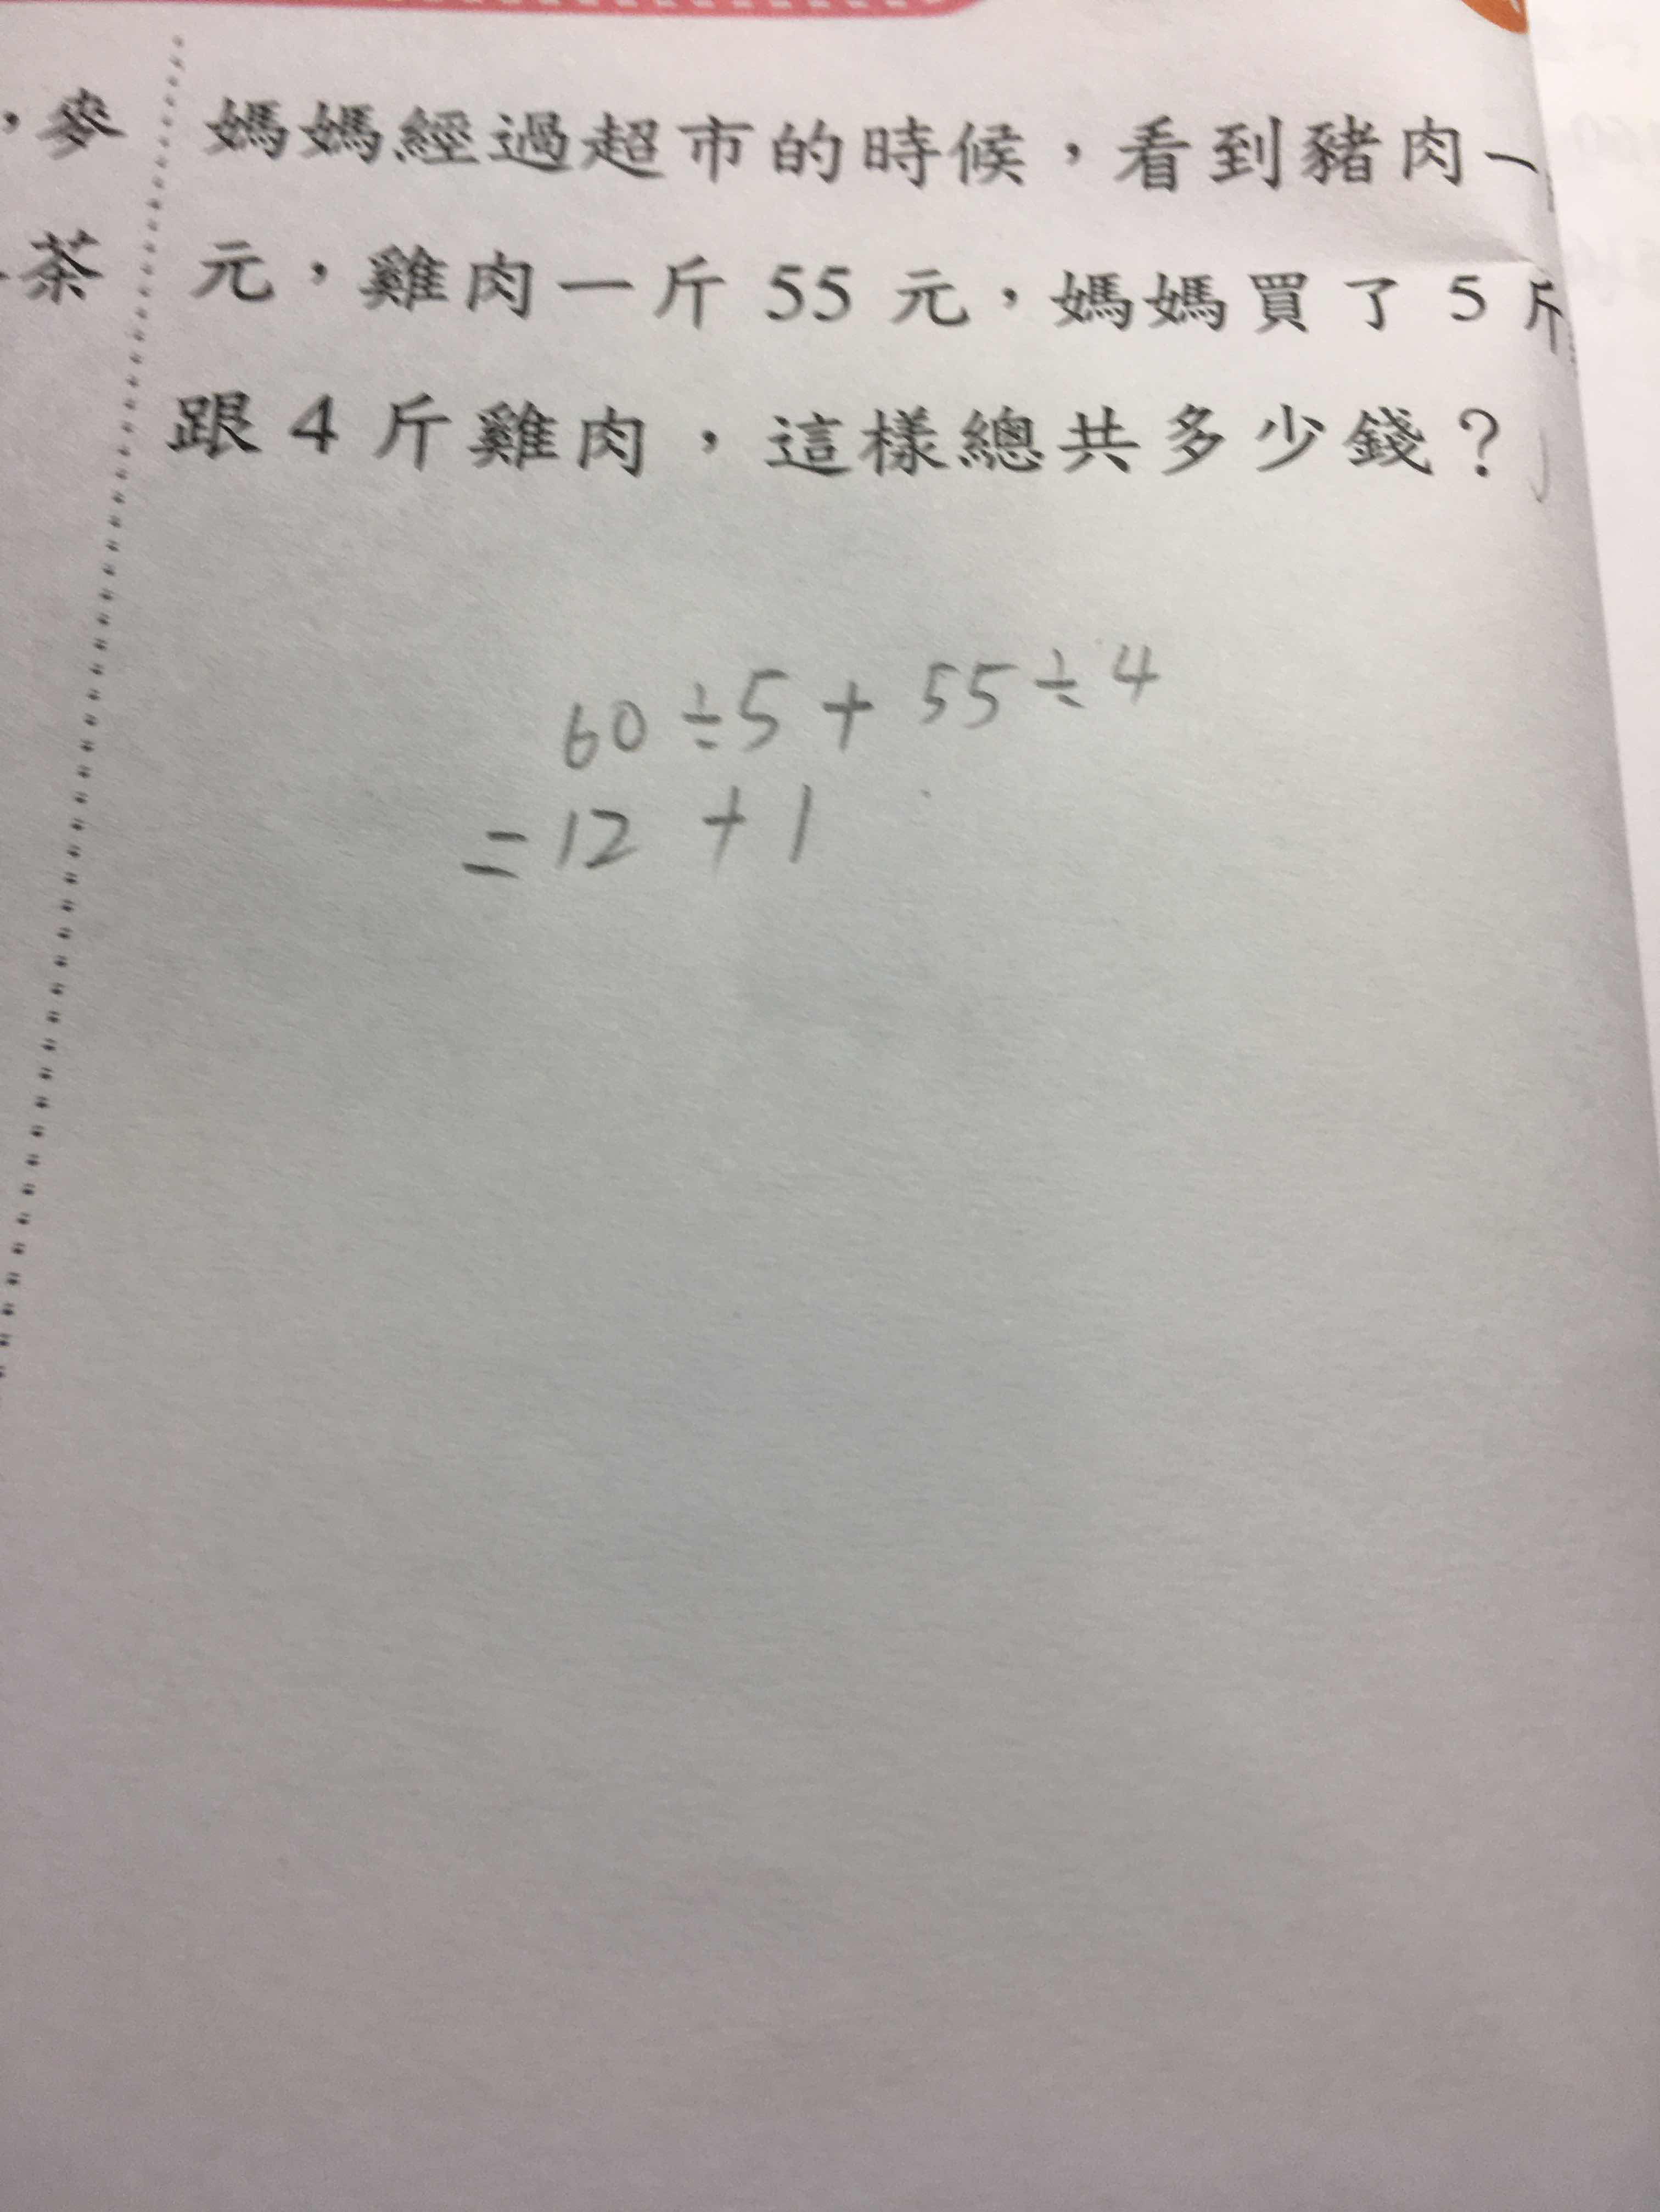 ，麥
茶
媽媽經過超市的時候，看到豬肉一
元，雞肉一斤 55 元，媽媽買了 5 斤
跟 4 斤雞肉，這樣總共多少錢？
60÷5+55÷4
=12 +1